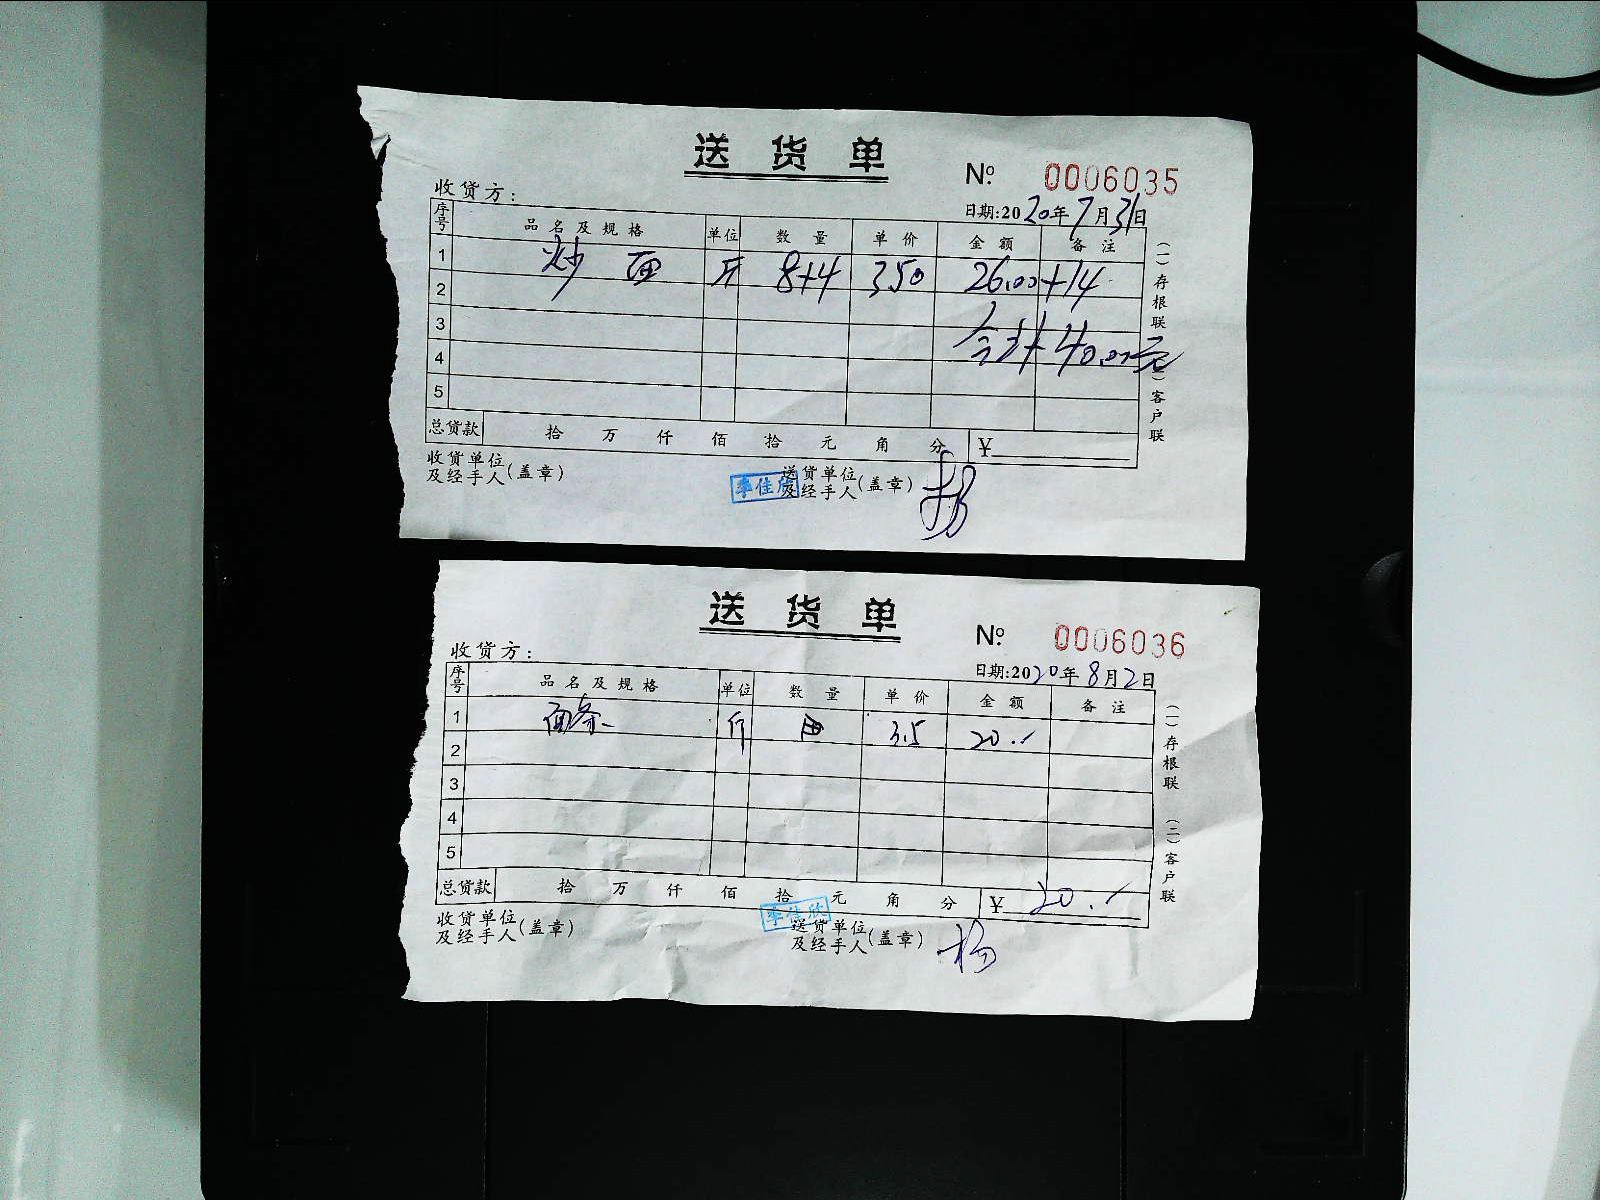 送货单
№ 0006035
收货方：
日期:2020年7月31日
序号 品名及规格 单位 数量 单价 金额 备注
1 炒面 斤 8+4 350 26.00+14
2
3 合计 40.00元
4
5
总货款 拾 万 仟 佰 拾 元 角 分 ¥
收货单位及经手人(盖章) 李佳欣 送货单位及经手人(盖章) 杨
(一)存根联 (二)客户联
送货单
№ 0006036
收货方：
日期:2020年8月2日
序号 品名及规格 单位 数量 单价 金额 备注
1 面条 斤 3.5 20.
2
3
4
5
总货款 拾 万 仟 佰 拾 元 角 分 ¥ 20.
收货单位及经手人(盖章) 李佳欣 送货单位及经手人(盖章) 杨
(一)存根联 (二)客户联